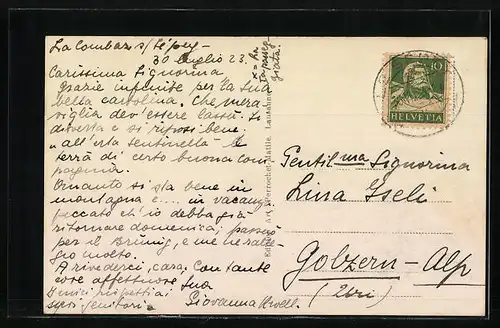 La Comballaz s/Sépey -
30 luglio 23.
Carissima Signorina
Grazie infinite per la sua
bella cartolina. Che mera-
viglia dev'essere lassù. Si
diverta e si riposi bene.
"all'erta sentinella" le
terrà di certo buona com
pagnia.
Quanto si sta bene in
montagna e... in vacanza
peccato ch'io debba già
ritornare domenica; passo
per il Brünig, e me ne ral-
gio molto.
A rivederci, cara; con tante
cose affettuose sua
Giovanna
x = la
Perrochet-Matile, Lausanne
10
HELVETIA
Gentil.ma Signorina
Lina Iseli
Golzern-Alp
(Uri)